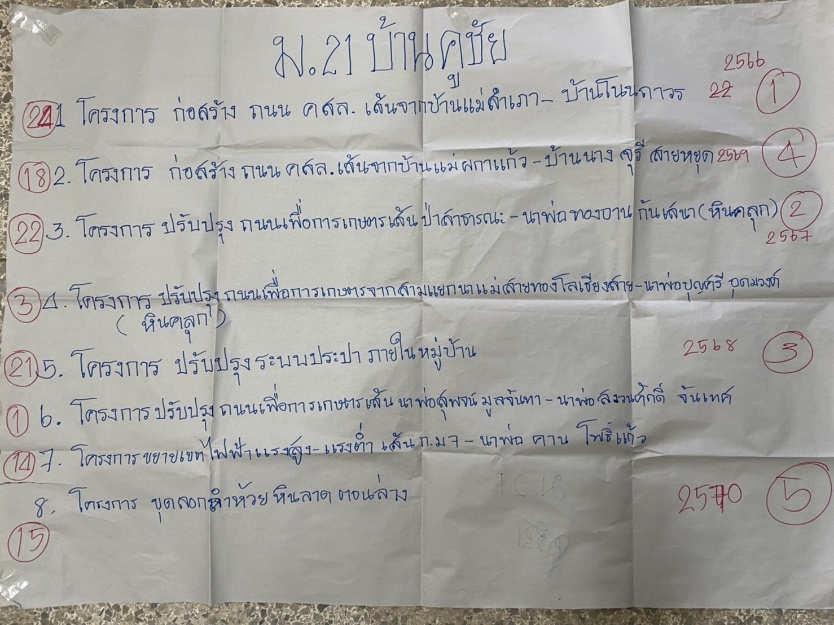 ม.21 บ้านคูชัย
2566
24 1 โครงการ ก่อสร้าง ถนน คสล. เส้นจากบ้านแม่สำเภา - บ้านโนนถาวร 22 1
18 2. โครงการ ก่อสร้าง ถนน คสล. เส้นจากบ้านแม่ผกาแก้ว - บ้านนาง จุรี สายหยุด 2569 4
22 3. โครงการ ปรับปรุง ถนนเพื่อการเกษตรเส้น ป่าสาธารณะ - นาพ่อทองอาน กันเสนา (หินคลุก) 2
2567
3 4. โครงการ ปรับปรุง ถนนเพื่อการเกษตรจากสามแยกนาแม่สายทอง โลเชียงสาย - นาพ่อบุญศรี อุดมวงศ์
(หินคลุก)
21 5. โครงการ ปรับปรุง ระบบประปา ภายในหมู่บ้าน 2568 3
1 6. โครงการ ปรับปรุง ถนนเพื่อการเกษตรเส้น นาพ่อสุพจน์ มูลจันทา - นาพ่อ สงวนศักดิ์ จันเทศ
14 7. โครงการ ขยายเขตไฟฟ้าแรงสูง - แรงต่ำ เส้น ก.ม 7 - นาพ่อ คาน โพธิ์แก้ว
8. โครงการ ขุดลอกลำห้วย หินลาด ตอนล่าง 2570 5
15